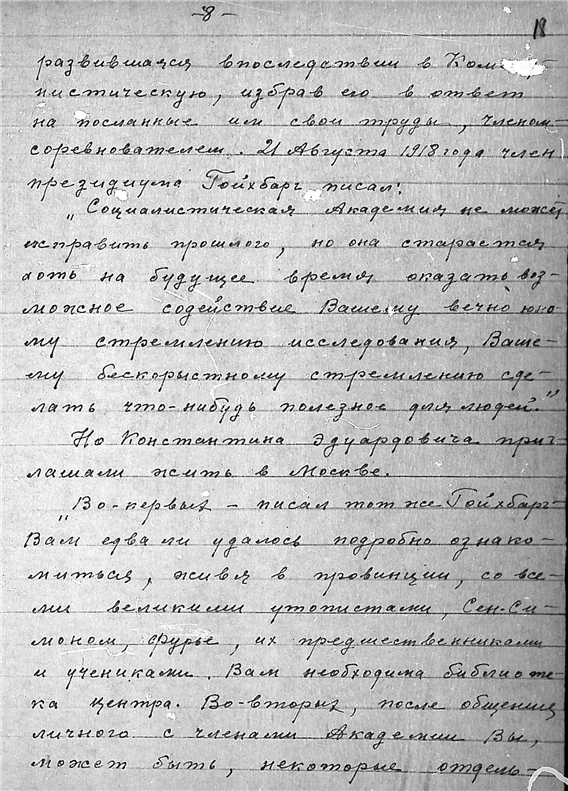 -8-
18
развившаяся впоследствии в Ком
нистическую, избрав его в ответ
на посланные им свои труды, членом-
соревнователем. 21 Августа 1918 года член
президиума Гойхбарг писал:
„Социалистическая Академия не может
исправить прошлого, но она старается
хоть на будущее время оказать воз-
можное содействие Вашему вечно юно-
му стремлению исследования, Ваше-
му бескорыстному стремлению сде-
лать что-нибудь полезное для людей."
Но Константина Эдуардовича приг-
лашали жить в Москве.
„Во-первых - писал тот же Гойхбарг-
Вам едва ли удалось подробно ознако-
миться, живя в провинции, со все-
ми великими утопистами, Сен-Си-
моном, Фурье, их предшественниками
и учениками. Вам необходима библиоте-
ка центра. Во-вторых, после общения
личного с членами Академии Вы,
может быть, некоторые отдель-